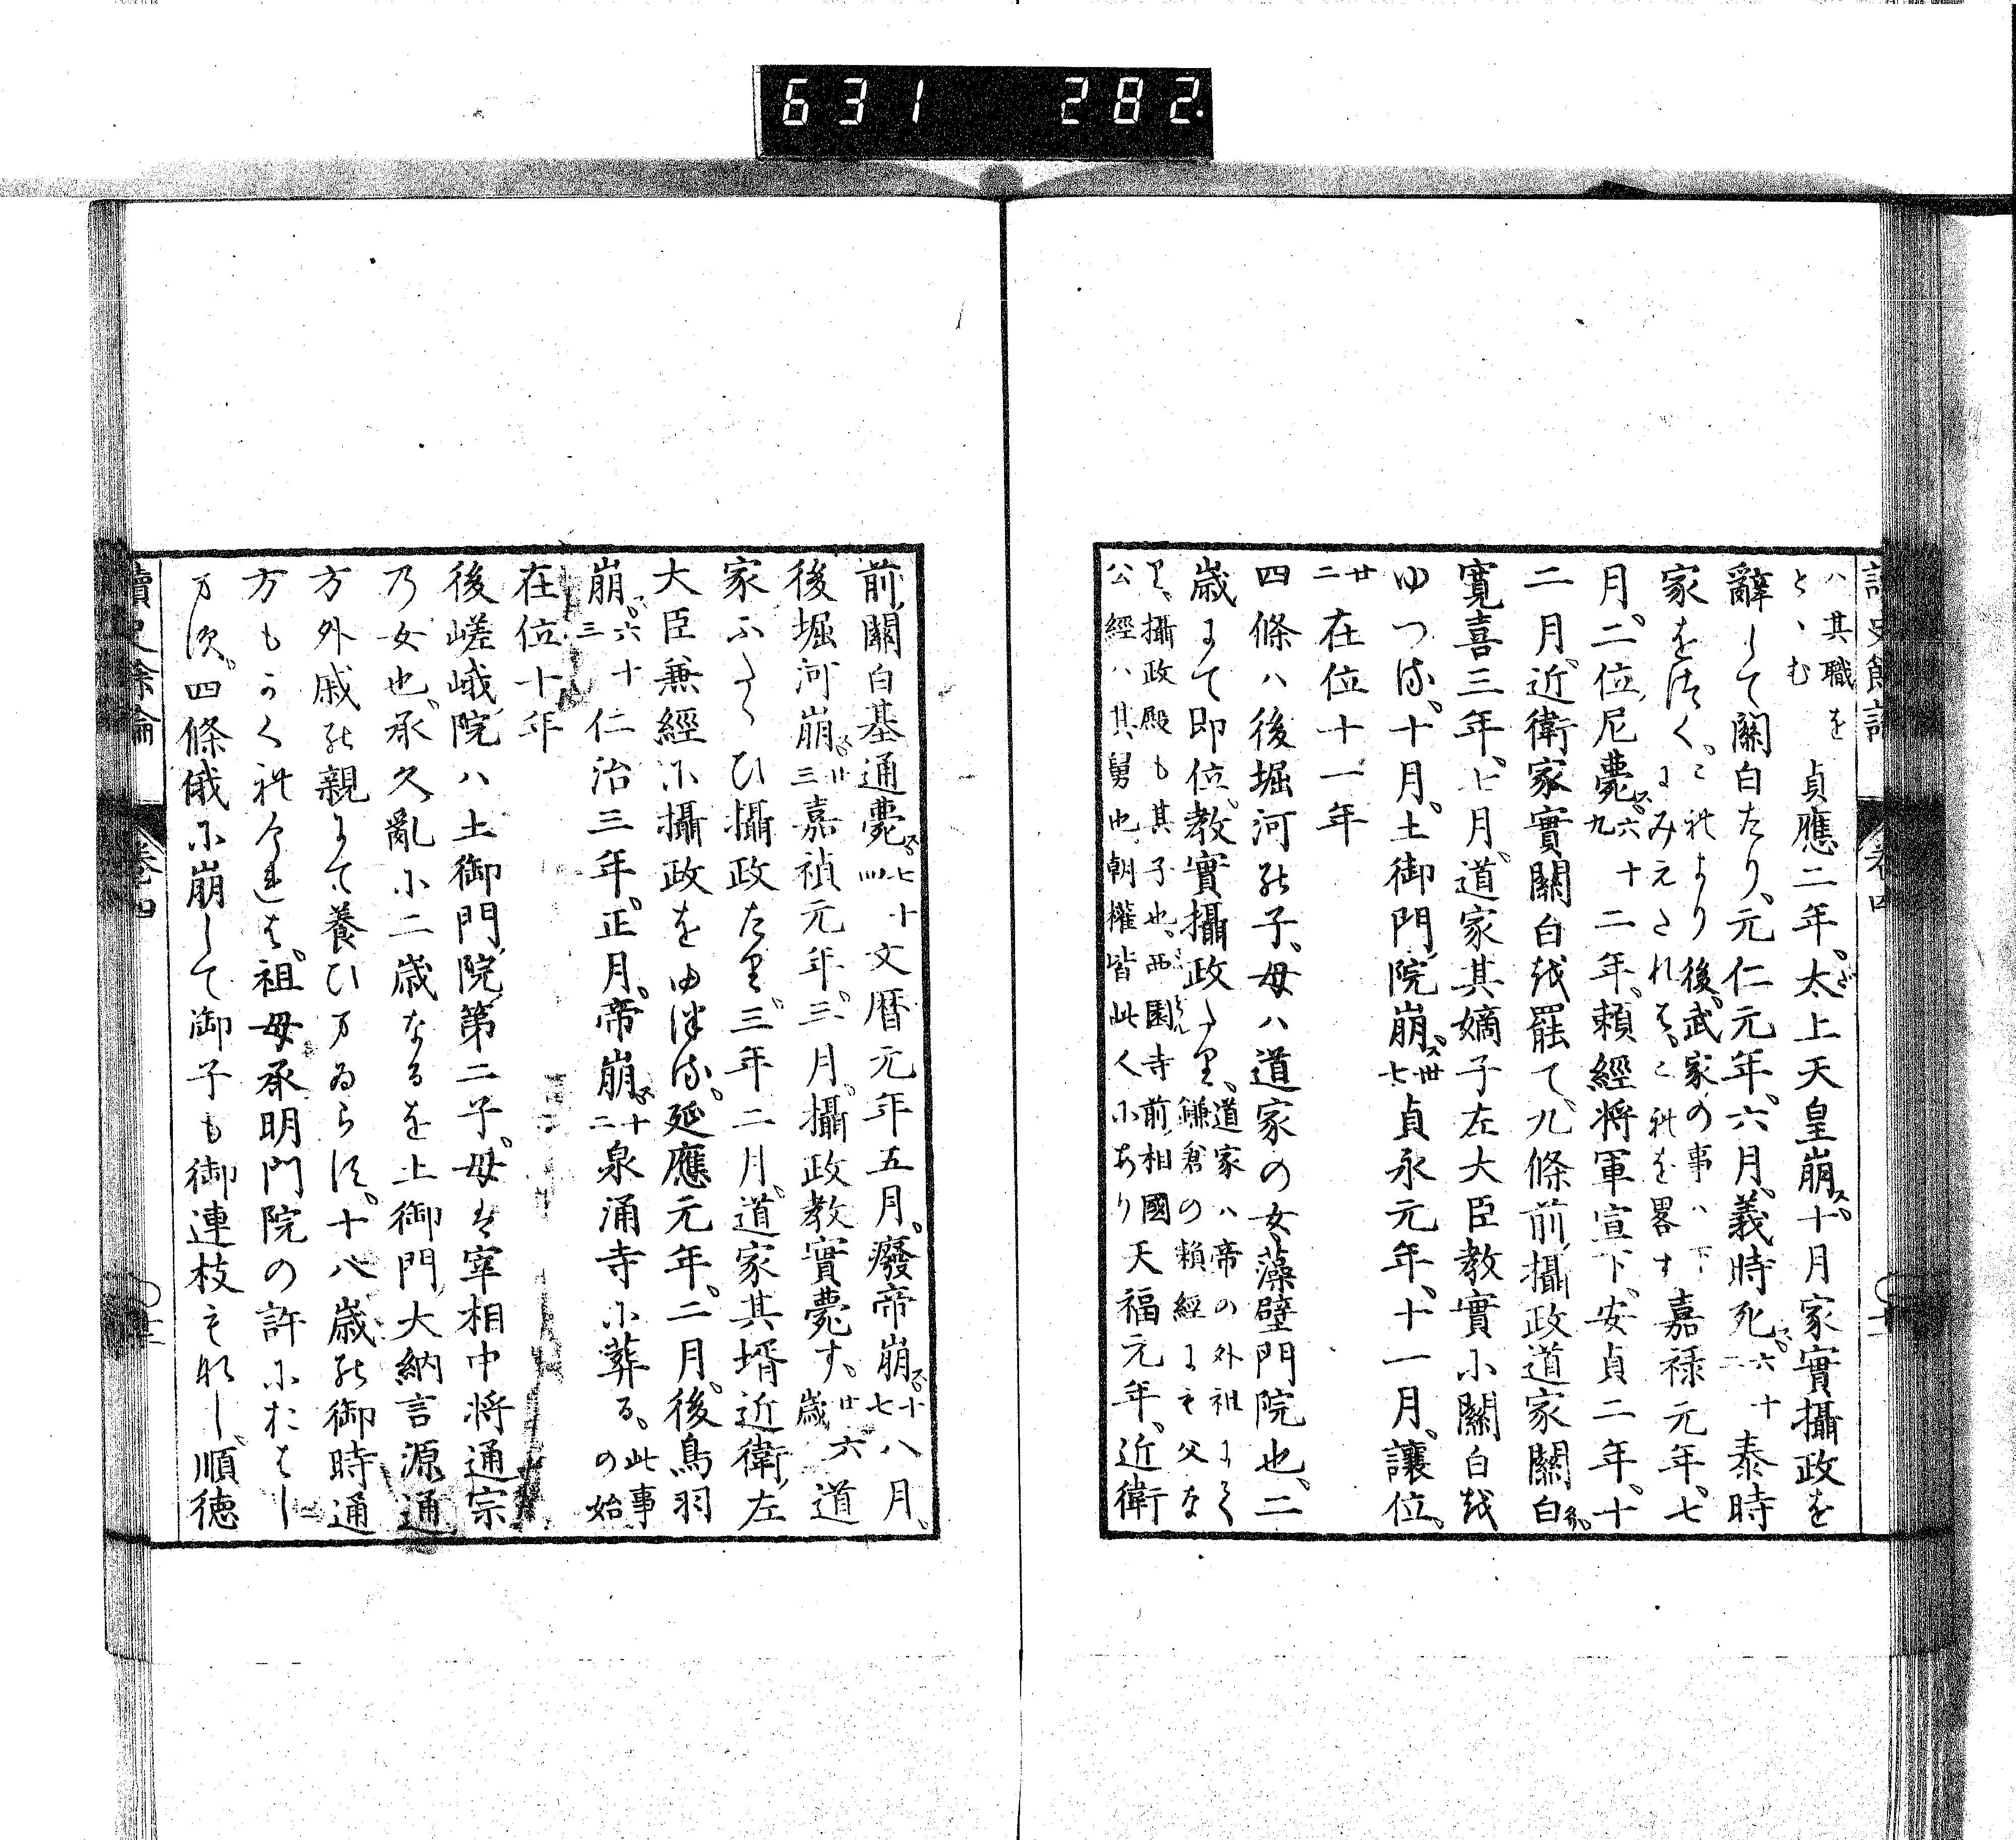 631 282.
讀史餘論 卷四
ハ其職をとゝむ 貞應二年、太上天皇崩ズ。十月家實攝政を
辭して關白たり、元仁元年、六月、義時死ズ。六十二 泰時
家をつく。これより後、武家の事ハ下にみえたれは、これを畧す 嘉禄元年、七
月。二位尼薨ズ。六十九 十二年、賴經将軍宣下、安貞二年、十
二月、近衛家實關白を罷て、九條前攝政道家關白、
寛喜三年、七月、道家其嫡子左大臣教實に關白を
ゆつる、十月。土御門院崩ズ。卅七 貞永元年、十一月、讓位。
廿二 在位十一年
四條ハ後堀河の子、母ハ道家の女、藻壁門院也、二
歳にて即位。教實攝政たり、道家ハ帝の外祖にて、鎌倉の賴經にも父な
り、攝政殿も其子也、西園寺前相國公經ハ其舅也、朝權皆此人にあり 天福元年、近衛
前關白基通薨ズ。七十四 文暦元年五月。廢帝崩ズ。十七 八月、
後堀河崩ズ。廿三 嘉禎元年、三月。攝政教實薨す、廿六歳 道
家ふたゝひ攝政たり、三年二月。道家其壻近衛左
大臣兼經に攝政をゆつる。延應元年、二月。後鳥羽
崩。六十三 仁治三年。正月。帝崩ズ。十二 泉涌寺に葬る、此事の始
在位十年
後嵯峨院ハ土御門院第二子。母は宰相中将通宗
乃女也、承久亂に二歳なるを土御門大納言源通
方外戚の親にて養ひまゐらす。十八歳の御時通
方もかくれけれは。祖母承明門院の許におはし
ます。四條俄に崩して御子も御連枝もなし、順徳
讀史餘論 卷四